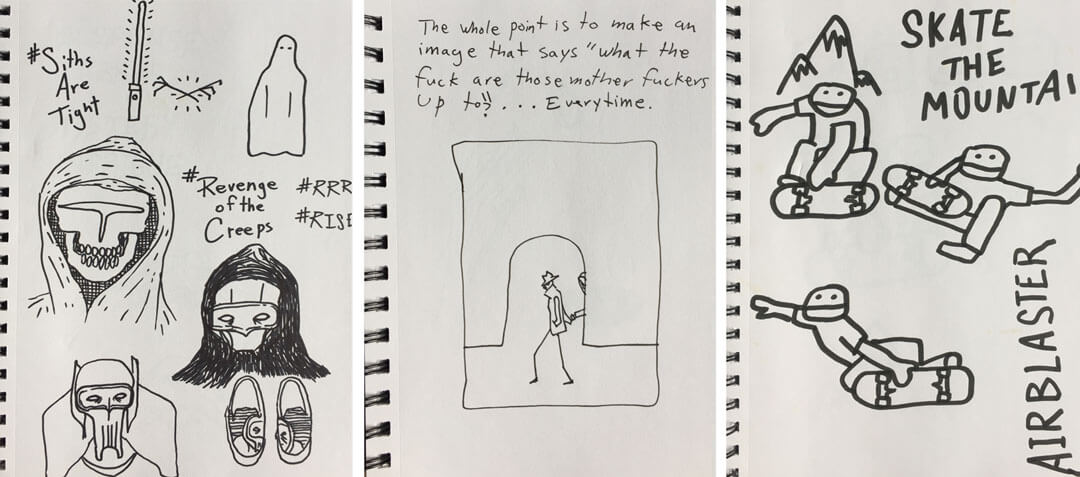 #Siths
Are
Tight
#Revenge
of the
Creeps
#RRR
#RISE
The whole point is to make an
image that says "what the
fuck are those mother fuckers
up to?!! ... Everytime.
SKATE
THE
MOUNTAI
AIRBLASTER